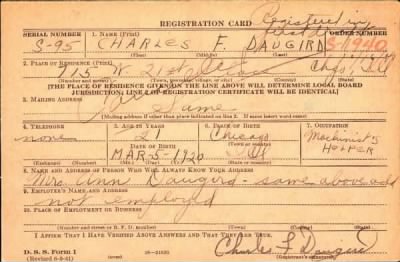 REGISTRATION CARD
Registered in
SERIAL NUMBER 1. NAME (Print) ORDER NUMBER
S-95 CHARLES F. DAUGIRD S-1940
(First) (Middle) (Last)
2. PLACE OF RESIDENCE (Print)
715 W. Chgo Ill
(Number and street) (Town, township, village, or city) (County) (State)
[THE PLACE OF RESIDENCE GIVEN ON THE LINE ABOVE WILL DETERMINE LOCAL BOARD
JURISDICTION; LINE 2 OF REGISTRATION CERTIFICATE WILL BE IDENTICAL]
3. MAILING ADDRESS
Same
[Mailing address if other than place indicated on line 2. If same insert word same]
4. TELEPHONE 5. AGE IN YEARS 6. PLACE OF BIRTH 7. OCCUPATION
none 21 Chicago Machinist's
DATE OF BIRTH HELPER
MAR-5-1920 Ill
(Exchange) (Number) (Mo.) (Day) (Yr.) (State or country)
8. NAME AND ADDRESS OF PERSON WHO WILL ALWAYS KNOW YOUR ADDRESS
Mrs. Ann Daugird - same above add
9. EMPLOYER'S NAME AND ADDRESS
not employed
10. PLACE OF EMPLOYMENT OR BUSINESS
(Number and street or R. F. D. number) (Town) (County) (State)
I AFFIRM THAT I HAVE VERIFIED ABOVE ANSWERS AND THAT THEY ARE TRUE.
D. S. S. Form 1 Charles F Daugird
(Revised 6-9-41) 16-21630 (Registrant's signature)